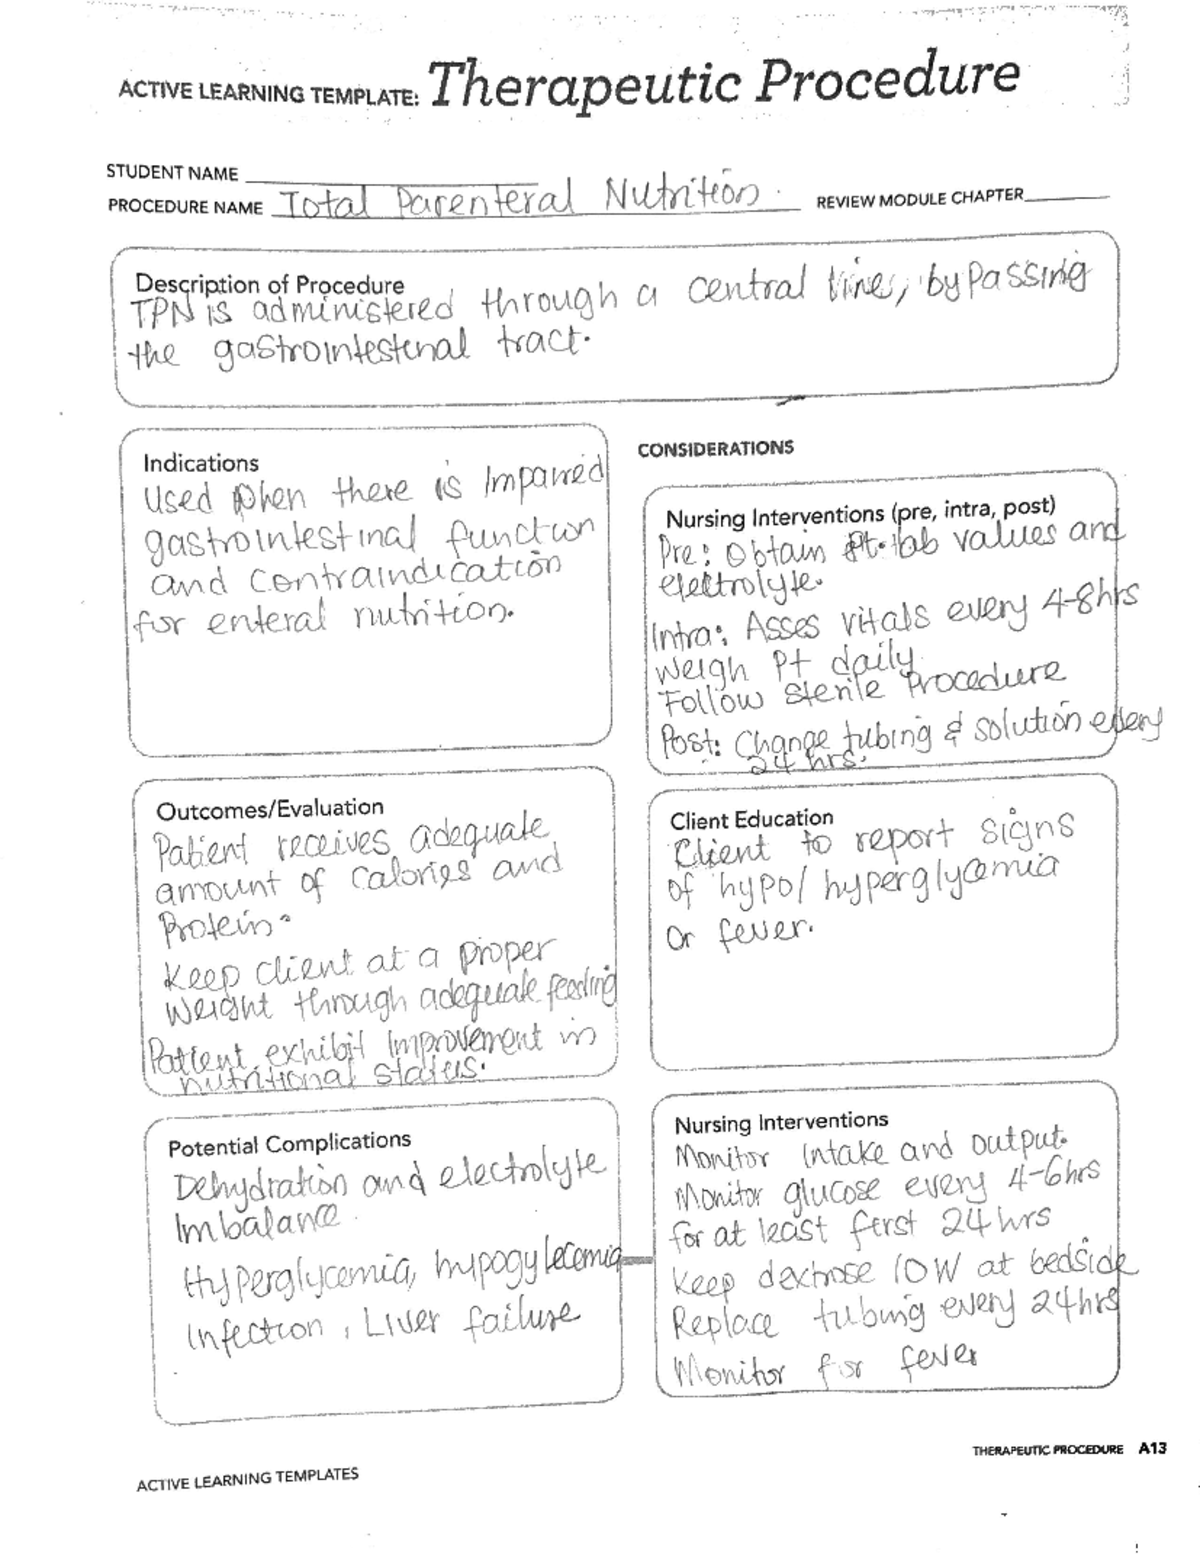 ACTIVE LEARNING TEMPLATE: Therapeutic Procedure
STUDENT NAME
PROCEDURE NAME Total Parenteral Nutrition. REVIEW MODULE CHAPTER
Description of Procedure
TPN is administered through a central line, bypassing
the gastrointestenal tract.
Indications
Used when there is Impaired
gastrointestinal function
and contraindication
for enteral nutrition.
CONSIDERATIONS
Nursing Interventions (pre, intra, post)
Pre: Obtain Pt. lab values and
electrolyte.
Intra: Asses vitals every 4-8hrs
Weigh Pt daily
Follow sterile Procedure
Post: Change tubing & solution every
24 hrs.
Outcomes/Evaluation
Patient receives adequate
amount of calories and
Protein.
Keep client at a proper
weight through adequate feeding
Patient exhibit Improvement in
nutritional status.
Client Education
Client to report signs
of hypo/ hyperglycemia
or fever.
Potential Complications
Dehydration and electrolyte
Imbalance.
Hyperglycemia, hypogylecemia
Infection, Liver failure
Nursing Interventions
Monitor Intake and output.
Monitor glucose every 4-6hrs
for at least ferst 24 hrs
Keep dextrose 10W at bedside
Replace tubing every 24hrs
Monitor for fever
THERAPEUTIC PROCEDURE A13
ACTIVE LEARNING TEMPLATES